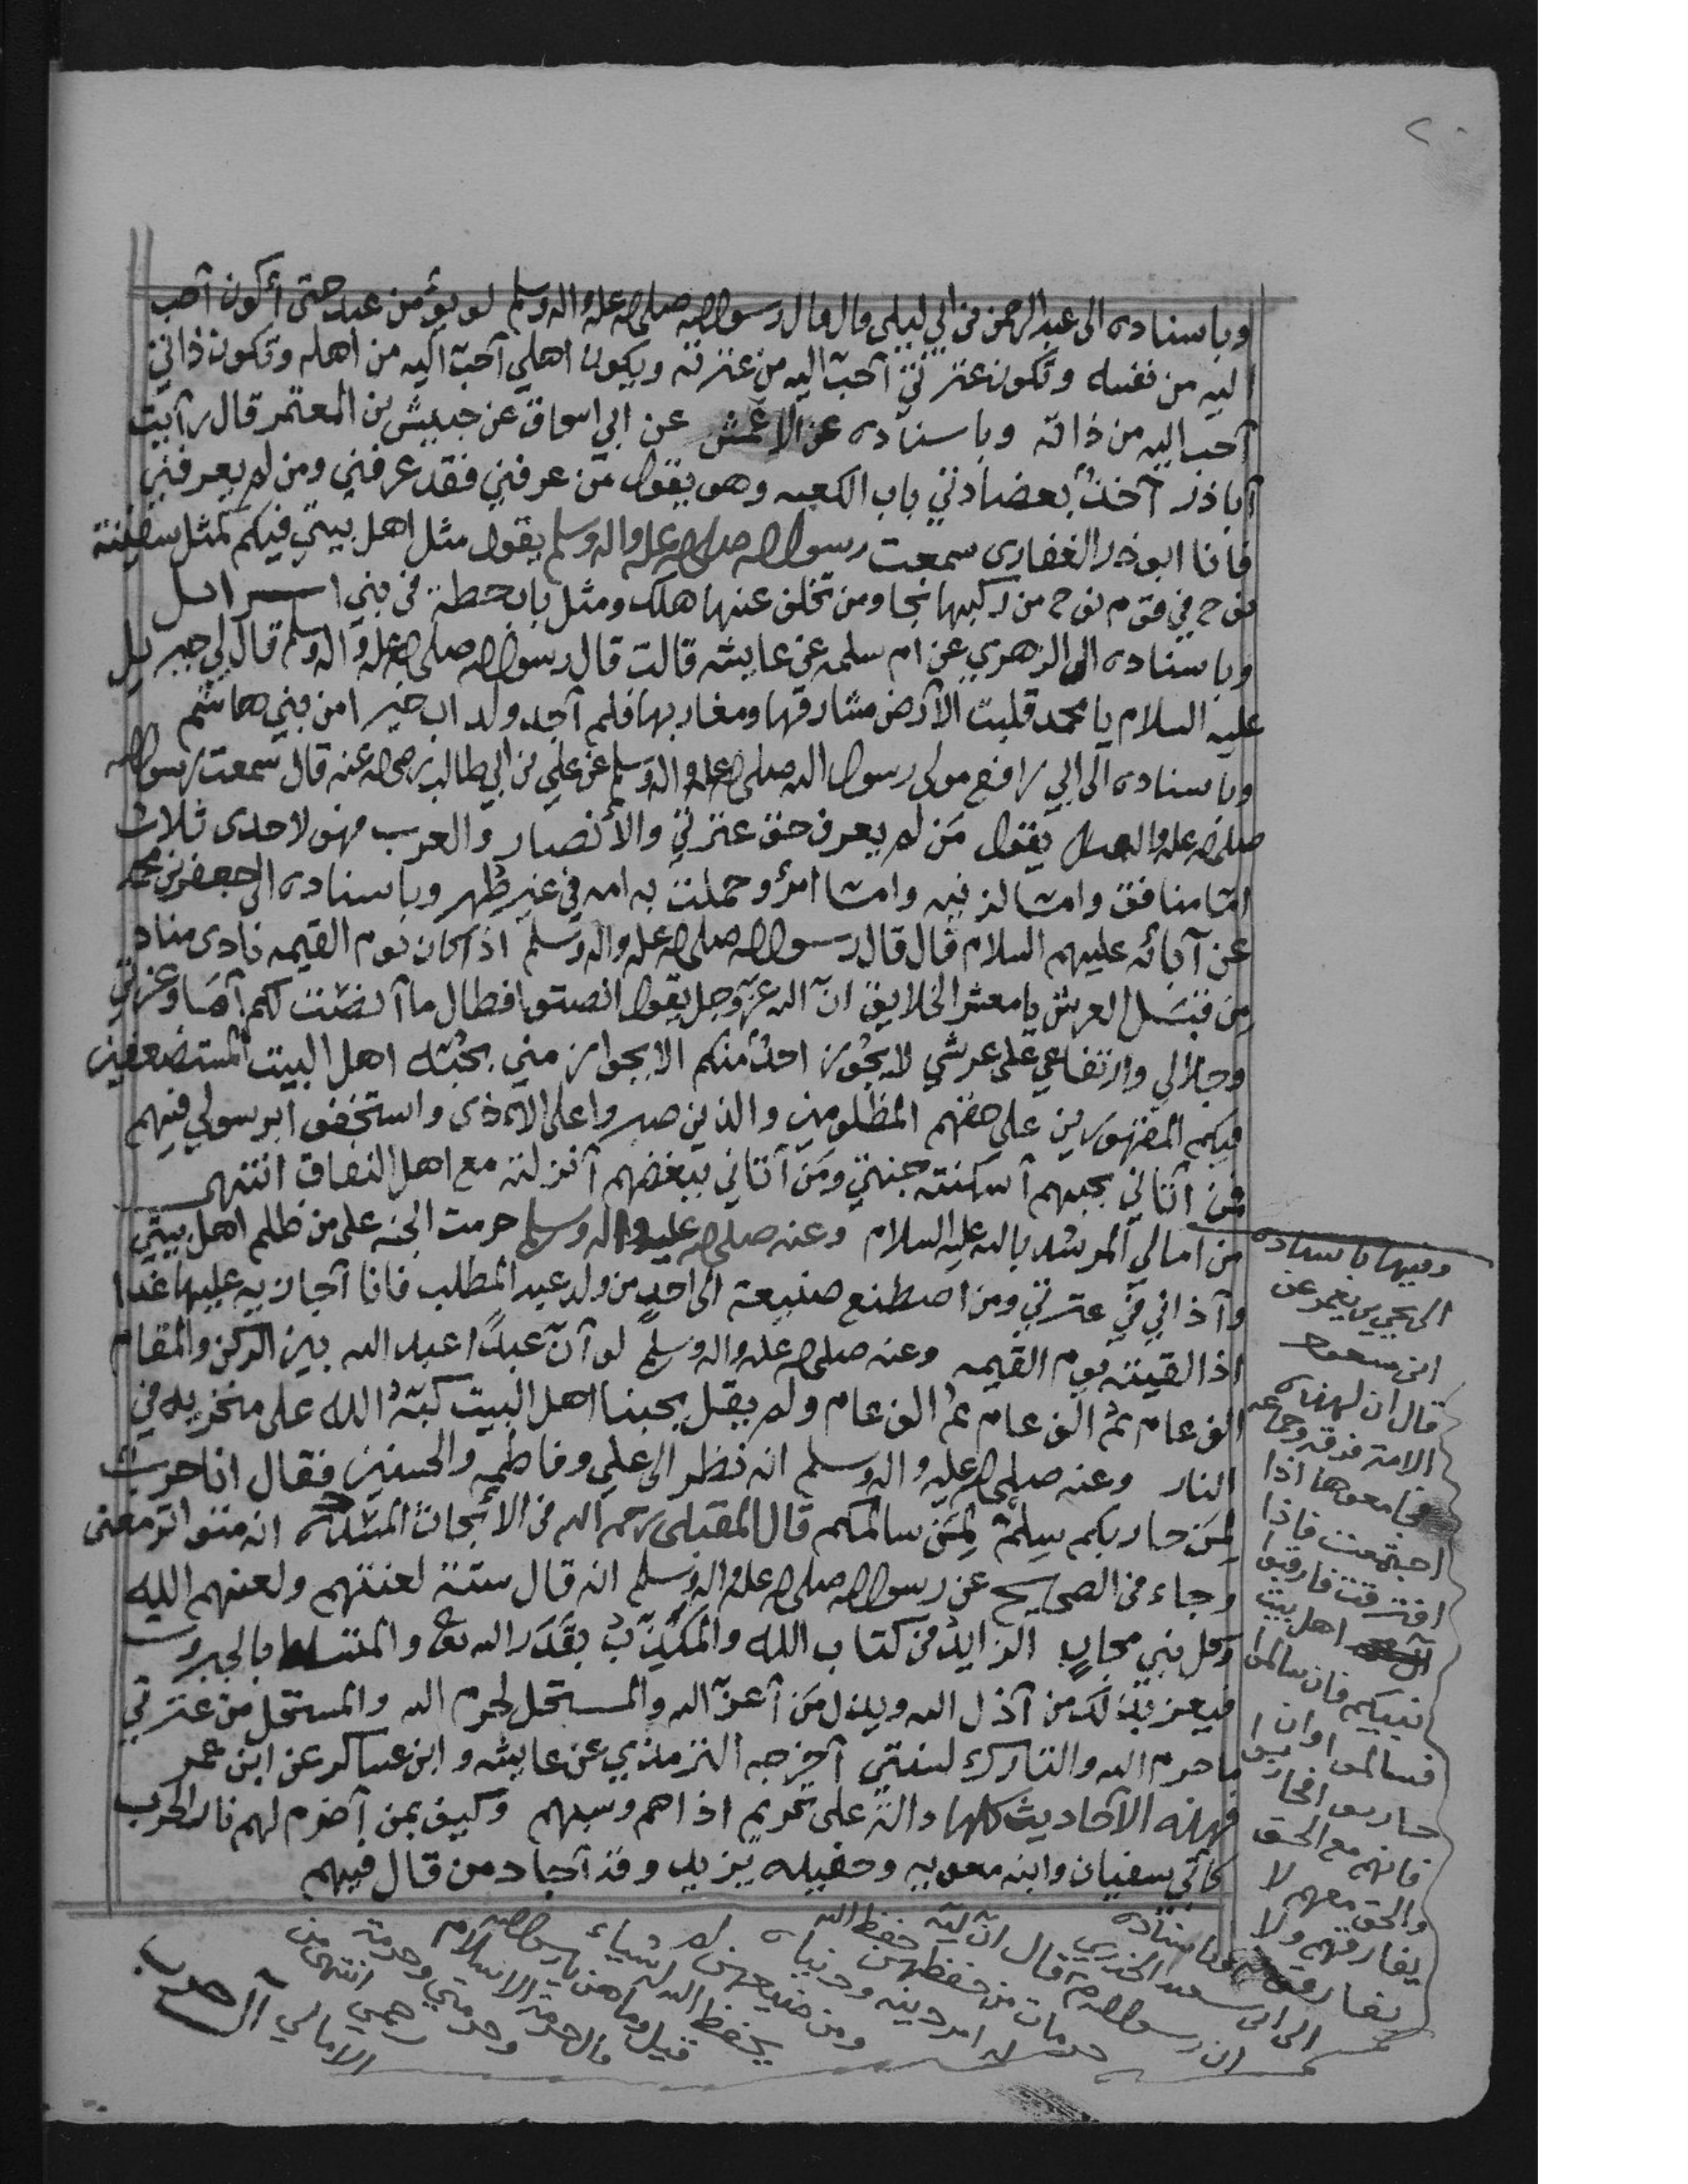 ٢٠
وباسناده الى عبد الرحمن بن ابي ليلى قال قال رسول الله صلى الله عليه واله وسلم لو يؤمن عبد حتى أكون أحب
اليه من نفسه وتكون عترتي أحب اليه من عترته ويكون اهلي أحب اليه من أهله وتكون ذاتي
أحب اليه من ذاته وباسناده عن الاعمش عن ابي اسحاق عن حبيش بن المعتمر قال رأيت
أبا ذر آخذ بعضادتي باب الكعبه وهو يقول من عرفني فقد عرفني ومن لم يعرفني
فانا ابو ذر الغفارى سمعت رسول الله صلى الله عليه واله وسلم يقول مثل اهل بيتي فيكم كمثل سفينة
نوح في قوم نوح من ركبها نجا ومن تخلف عنها هلك ومثل باب حطة في بني اسرائيل
وباسناده الى الزهري عن ام سلمه عن عايشه قالت قال رسول الله صلى الله عليه واله وسلم قال لي جبريل
عليه السلام يا محمد قلبت الأرض مشارقها ومغاربها فلم أجد ولد اب خيرا من بني هاشم
وباسناده الى ابي رافع مولى رسول الله صلى الله عليه واله وسلم عن علي بن ابي طالب رضي الله عنه قال سمعت رسول الله
صلى الله عليه واله وسلم يقول من لم يعرف حق عترتي والأنصار والعرب فهو لاحدى ثلاث
اما منافق واما لزنيه واما امرؤ حملت به امه في غير طهر وباسناده الى جعفر بن محمد
عن آبائه عليهم السلام قال قال رسول الله صلى الله عليه واله وسلم اذا كان يوم القيمه نادى مناد
من قبل العرش يا معشر الخلايق ان الله عز وجل يقول انصتوا فطال ما أنصت لكم أما وعزتي
وجلالي وارتفاعي على عرشي لا يجوز احد منكم الا بجواز مني بمحبة اهل البيت المستضعفين
فيكم المقهورين على حقهم المظلومين والذين صبروا على الاذى واستخفوا برسولي فيهم
فمن أتاني بحبهم أسكنته جنتي ومن أتاني ببغضهم أنزلته مع اهل النفاق انتهى
من امالي المرشد بالله عليه السلام وعنه صلى الله عليه واله وسلم حرمت الجنه على من ظلم اهل بيتي
وآذاني في عترتي ومن اصطنع صنيعة الى احد من ولد عبد المطلب فانا أجازيه عليها غدا
اذا لقيته يوم القيمه وعنه صلى الله عليه واله وسلم لو أن عبدا عبد الله بين الركن والمقام
الف عام ثم الف عام ثم الف عام ولم يقل بحبنا اهل البيت كبه الله على منخريه في
النار وعنه صلى الله عليه واله وسلم انه نظر الى علي وفاطمه والحسنين فقال انا حرب
لمن حاربكم سلم لمن سالمكم قال المقبلي رحمه الله في الابحاث المسدده انه متواتر معنى
وجاء في الصحيح عن رسول الله صلى الله عليه واله وسلم انه قال ستة لعنتهم ولعنهم الله
وكل نبي مجاب الزايد في كتاب الله والمكذب بقدر الله تع والمتسلط بالجبروت
فيعز بذلك من أذل الله ويذل من أعز الله والمستحل لحرم الله والمستحل من عترتي
ما حرم الله والتارك لسنتي أخرجه الترمذي عن عايشه وابن عساكر عن ابن عمر
فهذه الأحاديث كلها دالة على تحريم اذاهم وسبهم وكيف بمن أضرم لهم نار الحرب
كأبي سفيان وابنه معويه وحفيده يزيد وقد أجاد من قال فيهم
وفيها باسناده
الى يحيى بن يعمر عن
ابن مسعود
قال ان لهذه
الامة فرقه وجماعه
فجامعوها اذا
اجتمعت فاذا
افترقت فارقبوا
اهل بيت
نبيكم فان سالموا
فسالموا وان
حاربوا فحاربوا
فانهم مع الحق
والحق معهم لا
يفارقهم ولا
يفارقونه وباسناده
الى ابي سعيد الخدري
ان رسول الله ص قال ان لله
حرمات من حفظهن حفظ الله
له امر دينه ودنياه
ومن ضيعهن لم
يحفظ الله له شياء
قيل وما هن يا رسول الله
قال حرمة الاسلام
وحرمتي وحرمة
رحمي انتهى من
الامالي